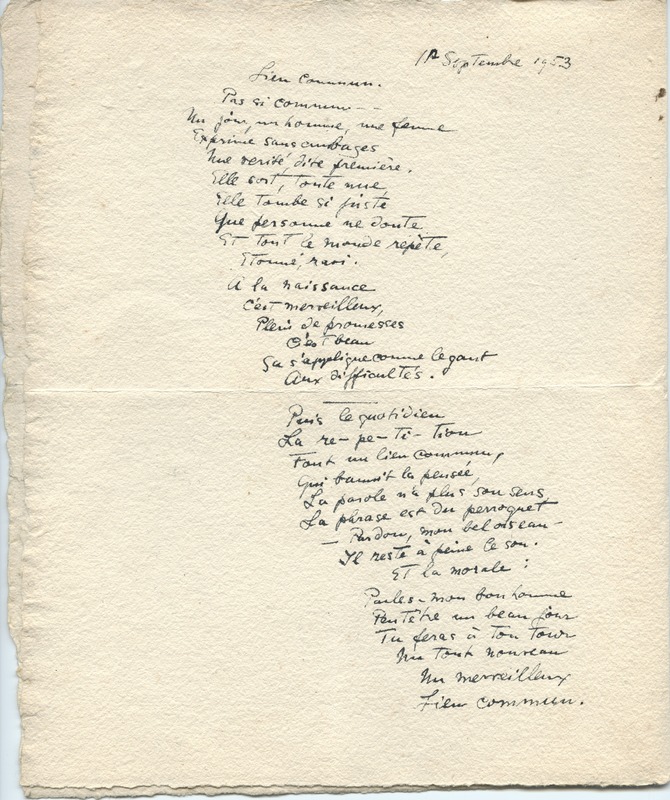 1er Septembre 1953
Lieu commun.
Pas si commun - -
Un jour, un homme, une femme
Exprime sans ambages
Une verité, dite première.
Elle sort, toute nue,
Elle tombe si juste
Que personne ne doute
Et tout le monde repète,
Etonné, ravi.
A la naissance
C'est merveilleux,
Plein de promesses
C'est beau
Ça s'applique comme le gant
Aux difficultés.
Puis le quotidien
La re-pe-ti-tion
Font un lieu commun,
Qui bannit la pensée,
La parole n'a plus son sens
La phrase est du perroquet
— Pardon, mon bel oiseau -
Il reste à peine le son.
Et la morale :
Parles - mon bonhomme
Peut'être un beau jour
Tu feras à ton tour
Un tout nouveau
Un merveilleux
Lieu commun.